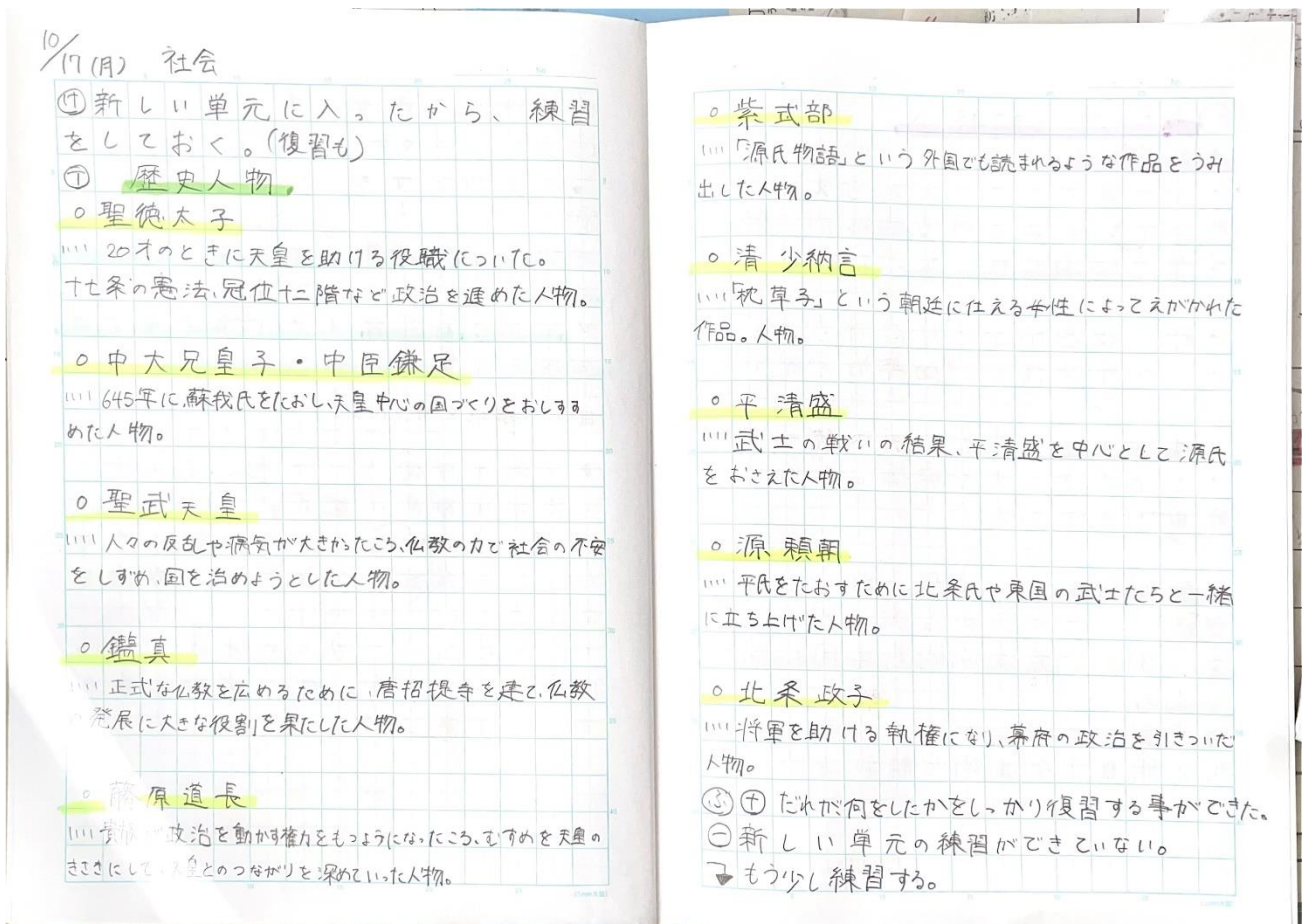 10/17(月) 社会
け 新しい単元に入ったから、練習
をしておく。(復習も)
テ 歴史人物
○聖徳太子
…. 20才のときに天皇を助ける役職についた。
十七条の憲法、冠位十二階など政治を進めた人物。
○中大兄皇子・中臣鎌足
…. 645年に、蘇我氏をたおし、天皇中心の国づくりをおしすす
めた人物。
○聖武天皇
…. 人々の反乱や病気が大きかったころ、仏教の力で社会の不安
をしずめ、国を治めようとした人物。
○鑑真
…. 正式な仏教を広めるために、唐招提寺を建て、仏教
発展に大きな役割を果たした人物。
○藤原道長
…. 貴族が政治を動かす権力をもつようになったころ、むすめを天皇の
きさきにして天皇とのつながりを深めていった人物。
○紫式部
…. 「源氏物語」という外国でも読まれるような作品をうみ
出した人物。
○清少納言
…. 「枕草子」という朝廷に仕える女性によってえがかれた
作品。人物。
○平清盛
…. 武士の戦いの結果、平清盛を中心として源氏
をおさえた人物。
○源頼朝
…. 平氏をたおすために北条氏や東国の武士たちと一緒
に立ち上げた人物。
○北条政子
…. 将軍を助ける執権になり、幕府の政治を引きついだ
人物。
ふ ＋ だれが何をしたかをしっかり復習する事ができた。
－ 新しい単元の練習ができていない。
もう少し練習する。